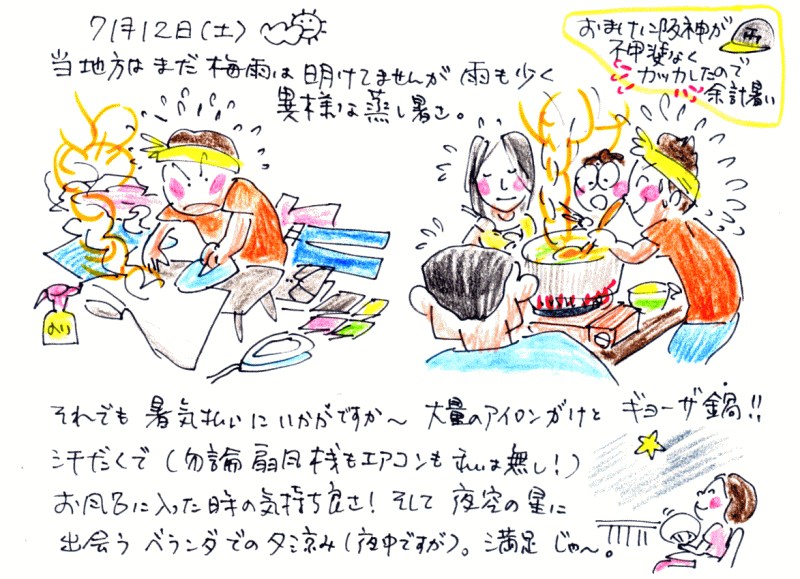 7月12日(土)
おまけに阪神が
不甲斐なく
カッカしたので
余計暑い
当地方はまだ梅雨は明けてませんが雨も少く
異様な蒸し暑さ。
のり
それでも暑気払いにいかがですか〜 大量のアイロンがけと ギョーザ鍋!!
汗だくで(勿論扇風機もエアコンも は無し!)
お風呂に入った時の気持ち良さ!そして 夜空の星に
出会う ベランダでの夕涼み(夜中ですが)。満足じゃ〜。